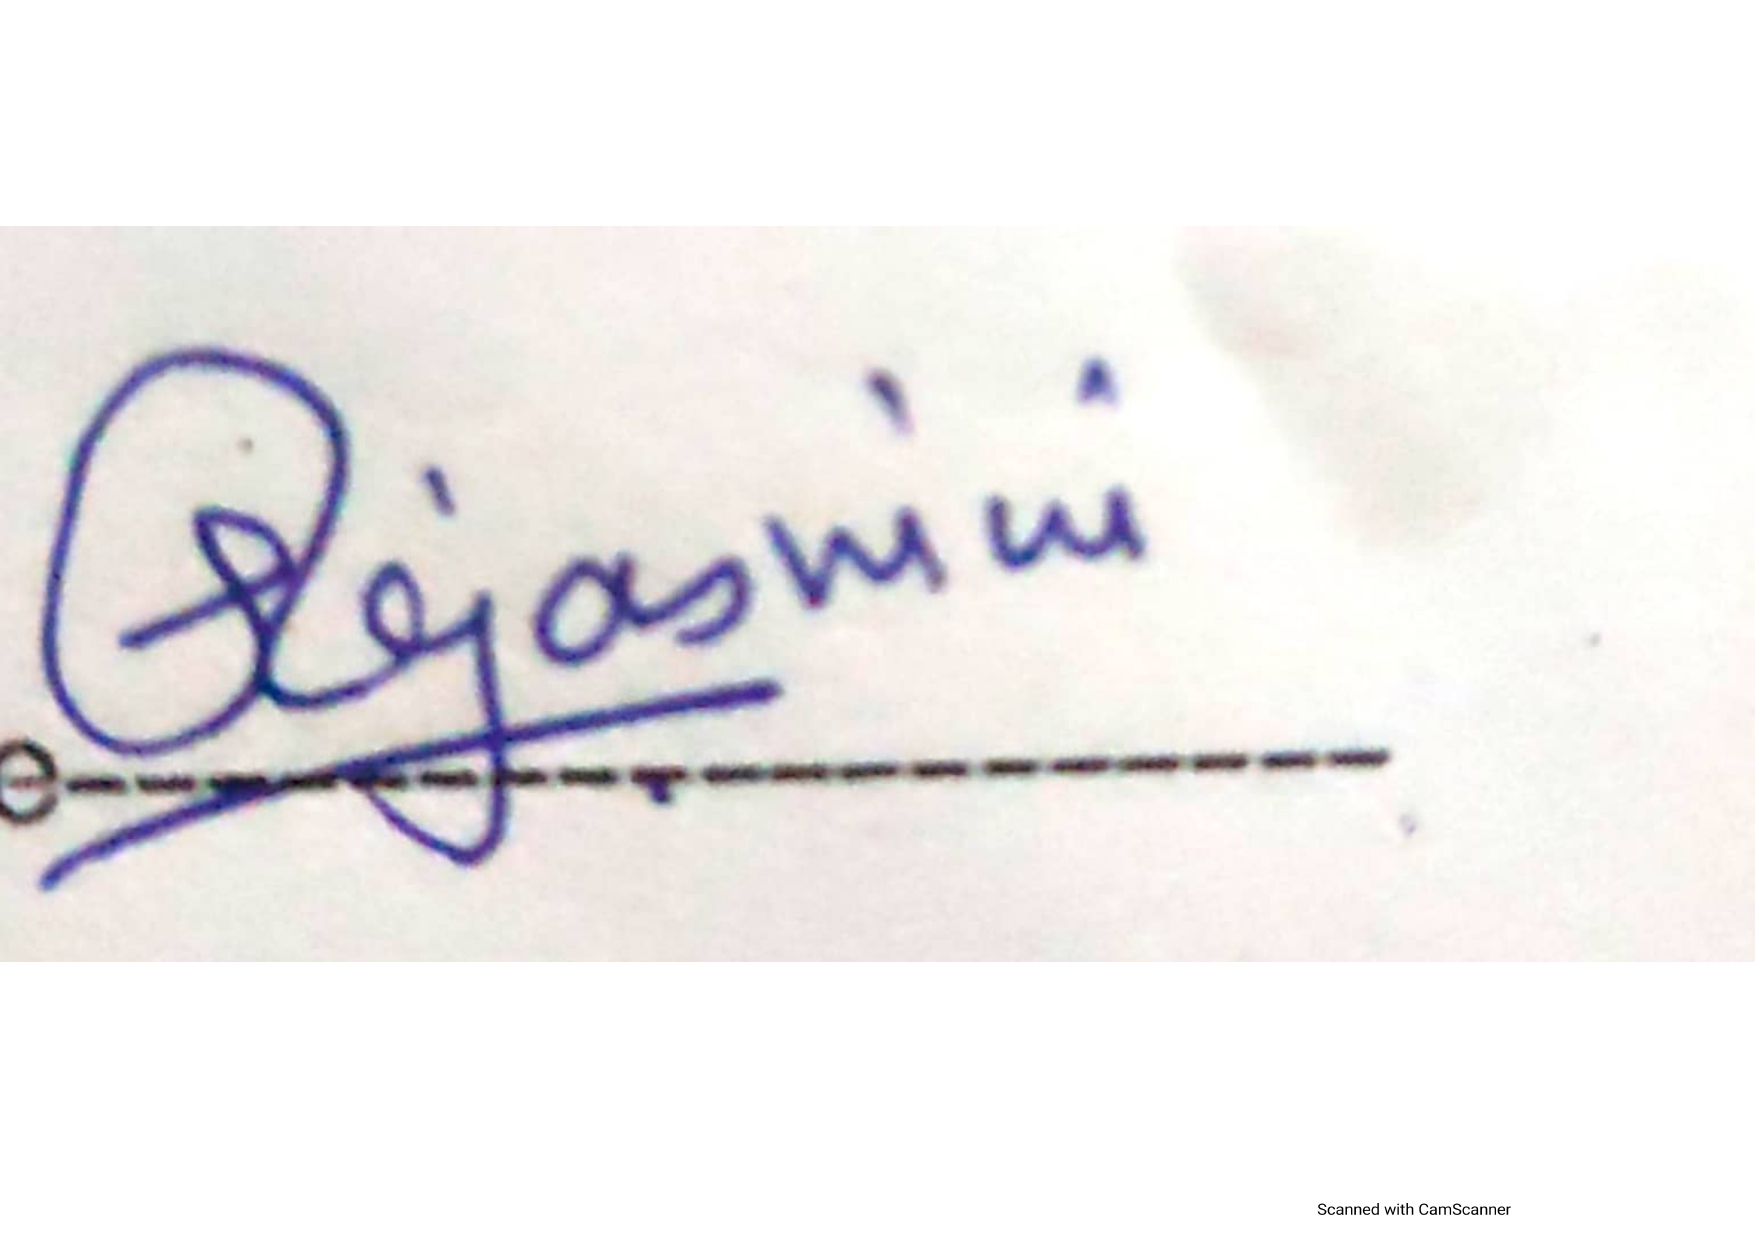 Tejaswini
Scanned with CamScanner